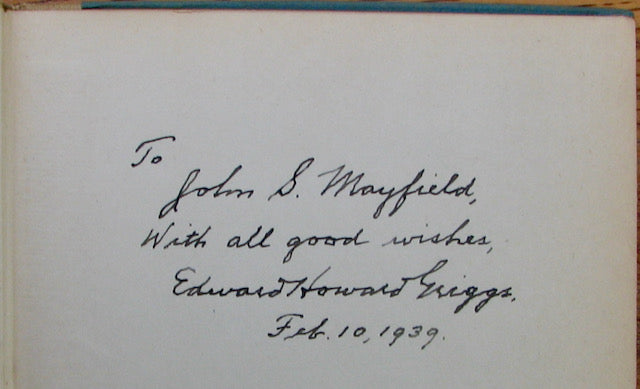 To
John S. Mayfield,
With all good wishes,
Edward Howard Griggs.
Feb. 10, 1939.